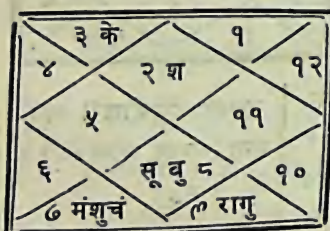 ३ के १
४ २ श १२
५ ११
६ सू बु ८ १०
७ मंशुचं ९ रागु